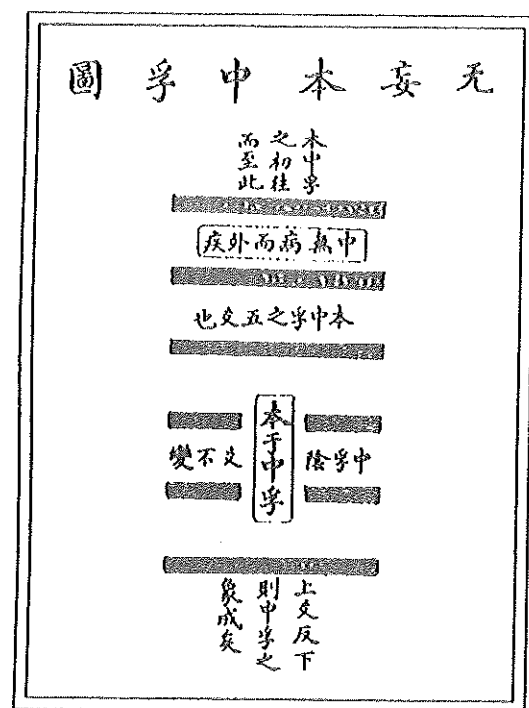 无妄本中孚圖
本中孚
之初往
而至此
中無病而外疾
本中孚之五爻也
中孚陰
爻不變
本于中孚
上爻反下
則中孚之
象成矣